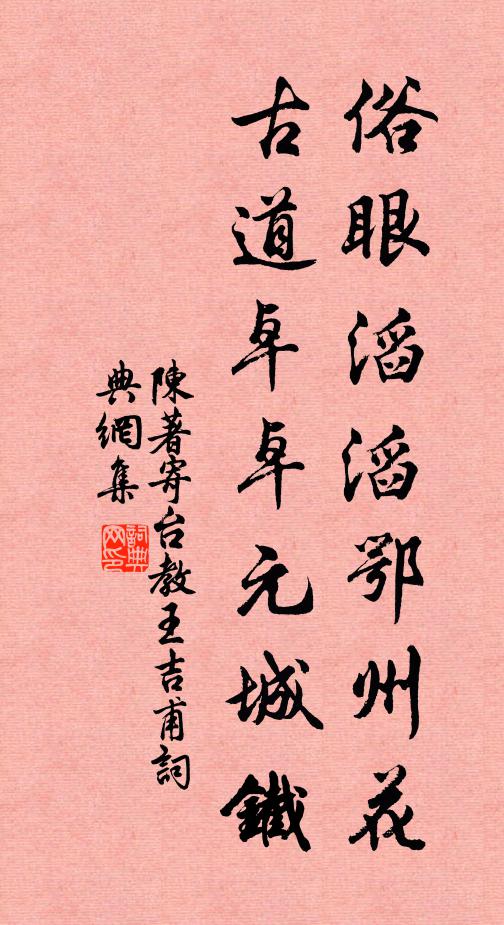 俗眼滔滔鄂州花
古道卓卓元城鐵
陳著寄台教王吉甫詞
典網集
詞典
网印